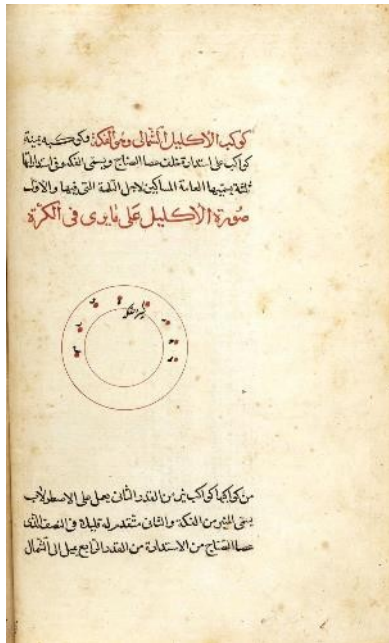 كوكب الاكليل الشمالى وهى الفكة وكوكبه ثمنية
كواكب على استدارة خلف عصا الصناج ويسمى الفكه وفى استدارتها
ثلمة يسميها العامة قصعة المساكين لاجل الثلمة التى فيها والاول
صورة الاكليل على ما يرى فى الكرة
من كواكبها كواكب نير من القدر الثانى يعمل على الاسطرلاب
يسمى المنير من الفكة والثانى متقدم له قليلا فى النصف الذى
عصا الصناج من الاستدارة من القدر الرابع يميل الى الشمال